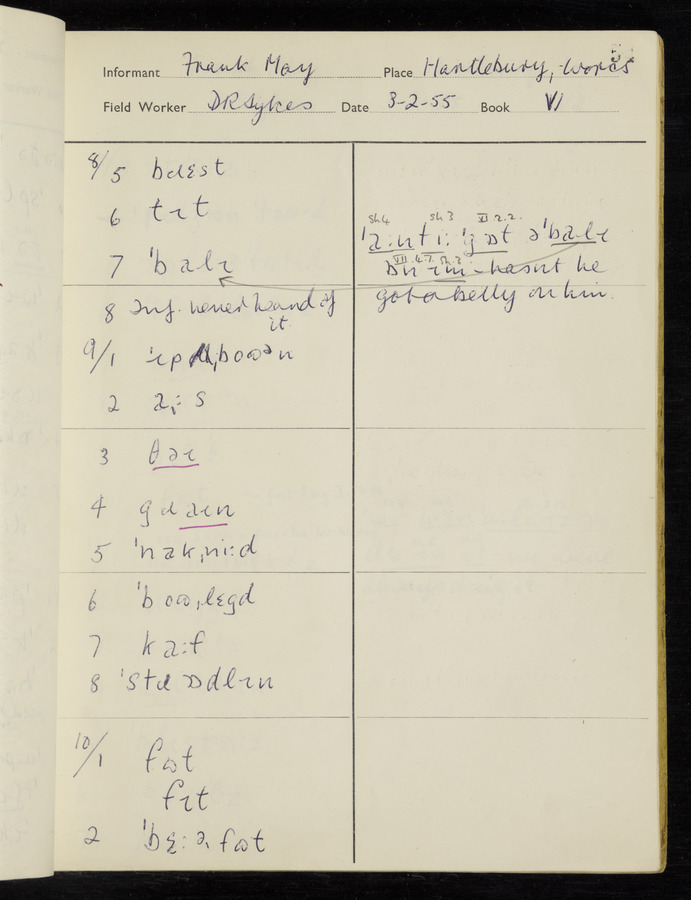 Informant Frank May Place Hartlebury, Worcs
Field Worker D R Sykes Date 3-2-55 Book VI
8/5 bɹɛst
6 tɪt
7 ˈbalɪ
8 Inf. never heard of
it.
9/1
2
3 θəɪ
4 gɹəɪn
5 ˈnakˌniːd
6 ˈbɒʊˌlɛgd
7 kaːf
8
10/1 fʊt
fɪt
2 ˈbɛːəfʊt
Sh4 Sh3 VI 2.2.
ə ˈbalɪ
hasn't he
got a belly on him.